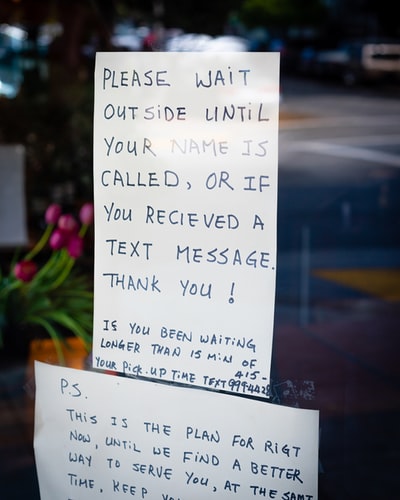 PLEASE WAIT
OUTSIDE UNTIL
YOUR NAME IS
CALLED, OR IF
YOU RECIEVED A
TEXT MESSAGE.
THANK YOU !
IF YOU BEEN WAITING
LONGER THAN 15 MIN OF
YOUR PICK.UP TIME TEXT 415-
P.S.
THIS IS THE PLAN FOR RIGT
NOW, UNTIL WE FIND A BETTER
WAY TO SERVE YOU, AT THE SAMT
TIME, KEEP